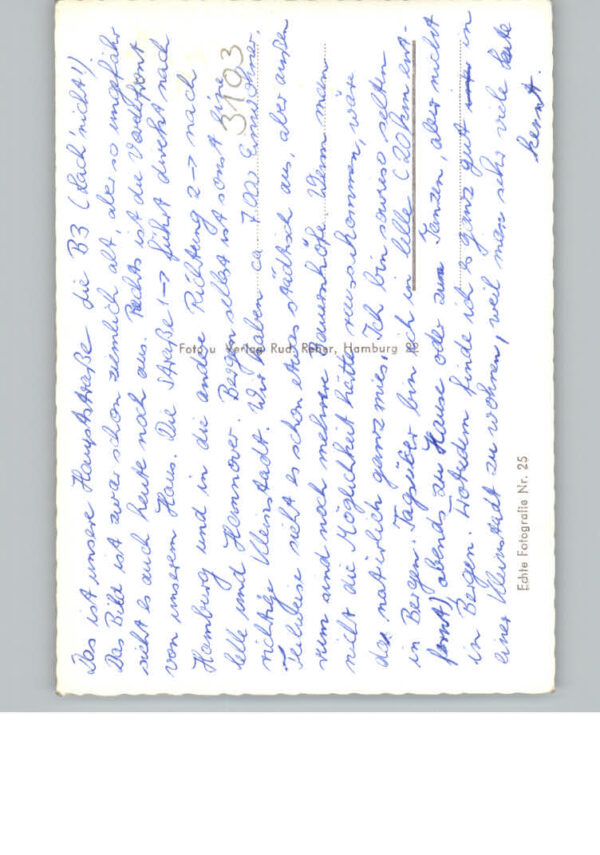 Das ist unsere Hauptstraße die B3 (Lach' nicht!)
Das Bild ist zwar schon ziemlich alt, aber so ungefähr
sieht es auch heute noch aus. Rechts ist die Vorderfront
von unserem Haus. Die Straße 1→ führt direkt nach
Hamburg und in die andere Richtung 2→ nach
Celle und Hannover. Bergen selbst ist sonst eine
richtige Kleinstadt. Wir haben ca 7.000 Einwohner.
Teilweise sieht es schon etwas städtisch aus, aber außen
rum sind noch mehrere Bauernhöfe. Wenn man
nicht die Möglichkeit hätte rauszukommen, wäre
das natürlich ganz mies. Ich bin sowieso selten
in Bergen. Tagsüber bin ich in Celle (20 km ent-
fernt), abends zu Hause oder zum Tanzen, aber nicht
in Bergen. Trotzdem finde ich es ganz gut in
einer Kleinstadt zu wohnen, weil man sehr viele Leute
kennt.
3103
Foto u. Verlag Rud. Reher, Hamburg 22
Echte Fotografie Nr. 25